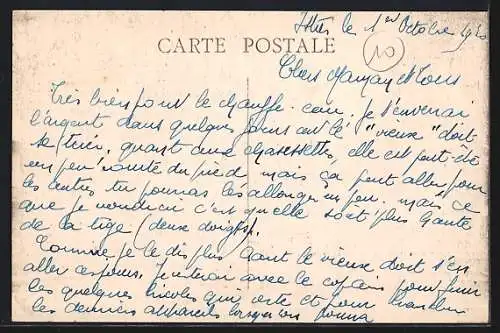 le 1er Octobre
CARTE POSTALE
10
Chers Maman et Tous
Très bien pour le chauffe-eau, je t'enverrai
l'argent dans quelques jours car le "vieux" doit
se tirer, quant aux chaussettes, elle est peut-être
un peu du pied mais ça peut aller, pour
les autres tu pourras les allonger un peu. mais ce
que je voudrais c'est qu'elle soit plus haute
de la tige (deux doigts).
Comme je le dis plus haut le vieux doit s'en
aller ces jours, je verrai avec le copain pour finir
les quelques bricoles qui reste et pour
les derniers appareils lorsqu'on pourra